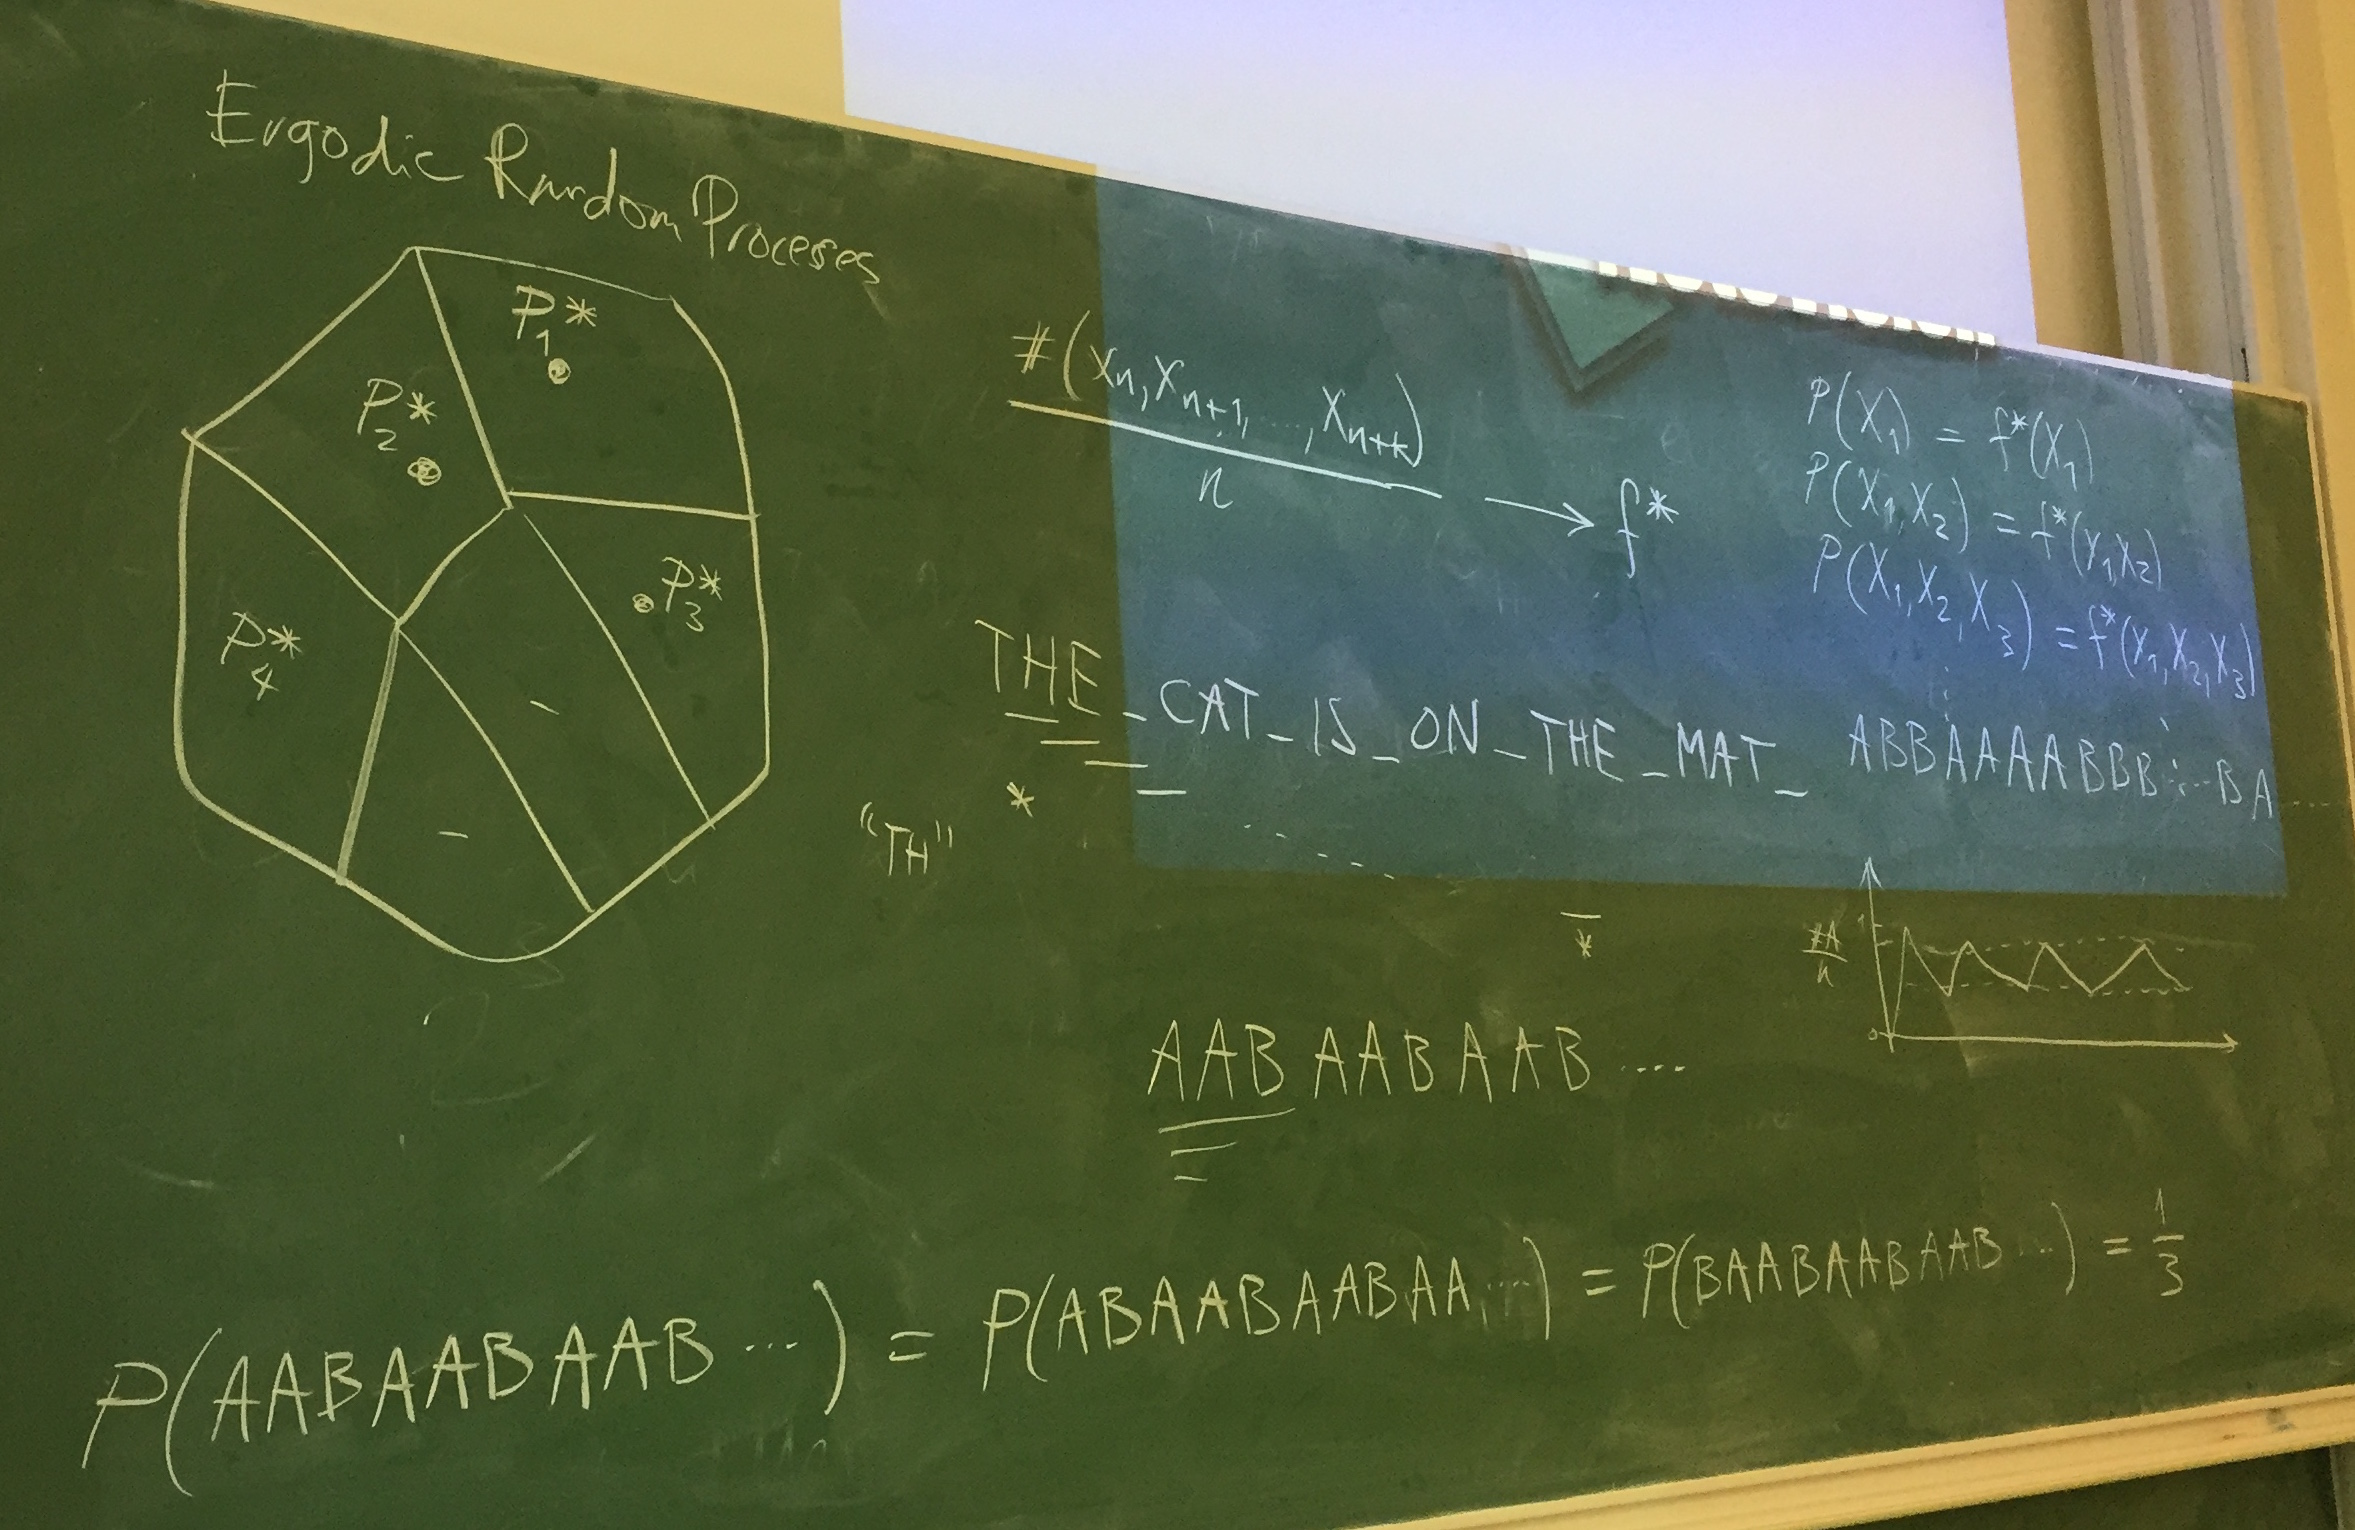 Ergodic Random Proceses
P₁*
P₂*
P₃*
P₄*
#(Xₙ, Xₙ₊₁, ..., Xₙ₊ₖ)
n
→ f*
P(X₁) = f*(X₁)
P(X₁, X₂) = f*(X₁, X₂)
P(X₁, X₂, X₃) = f*(X₁, X₂, X₃)
THE_CAT_IS_ON_THE_MAT_
ABBAAAABBB...BA....
"TH" *
*
#A
n
1
0
AAB AAB AAB ....
P(AABAABAAB ...) = P(ABAABAABAA ....) = P(BAABAABAAB ...) = 1/3